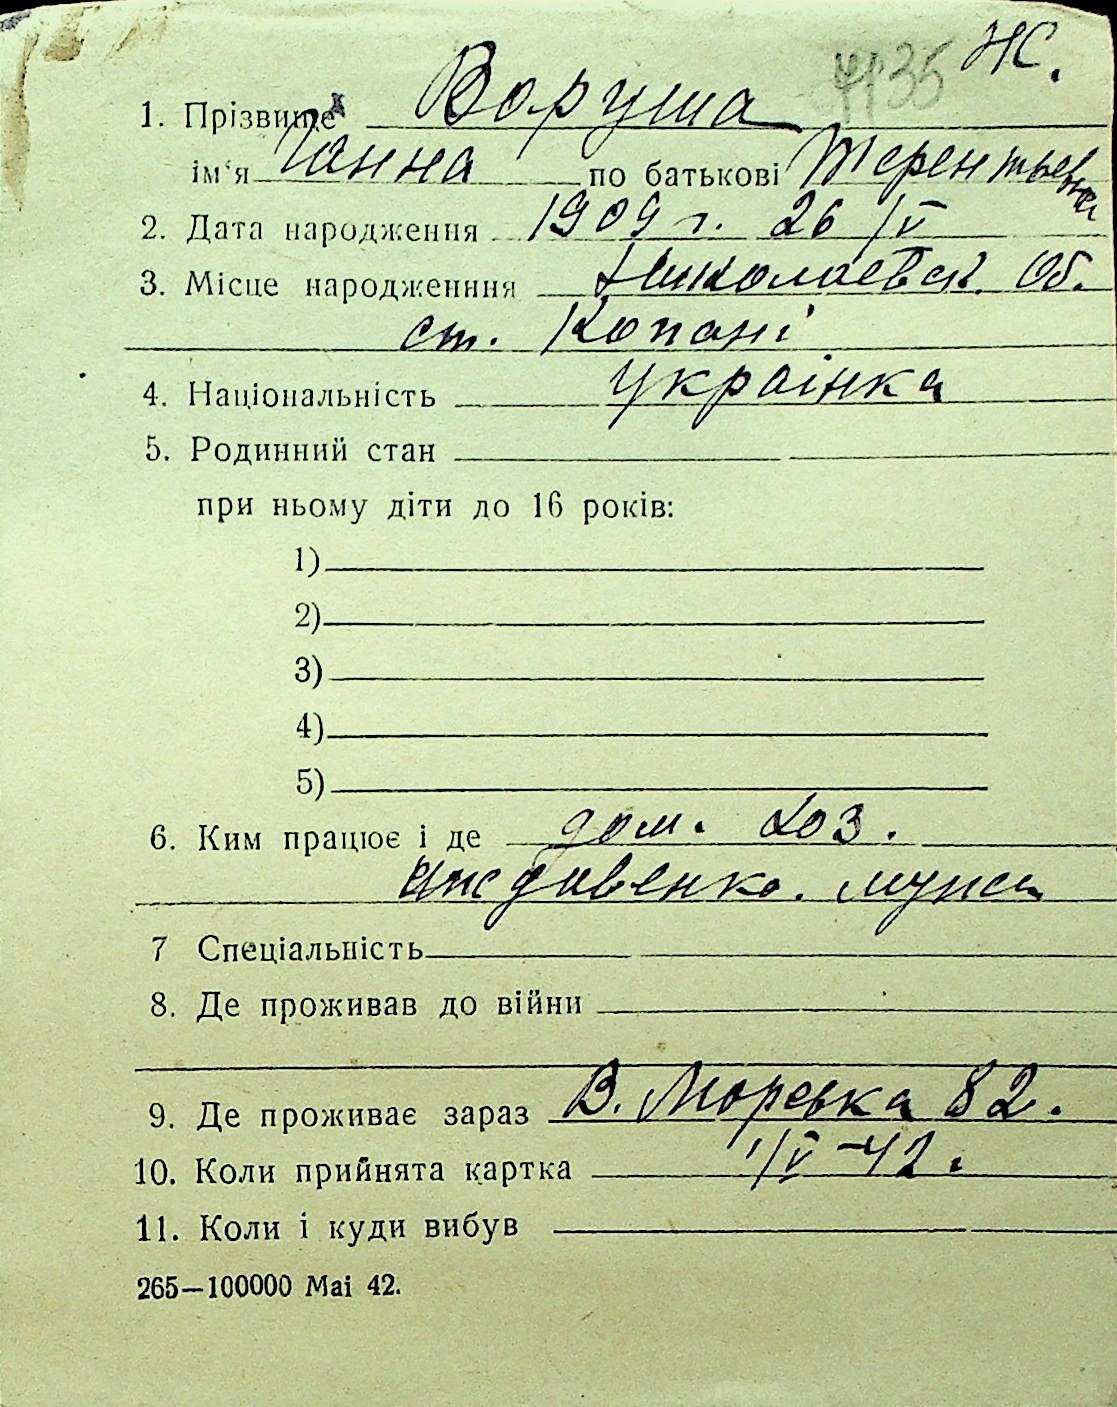 4135 Ж.
1. Прізвище Воруша
ім'я Ганна по батькові Терентьевна
2. Дата народження 1909 г. 26/V
3. Місце народженння Николаевск. Об.
ст. Копані
4. Національність Украінка
5. Родинний стан
при ньому діти до 16 років:
1)
2)
3)
4)
5)
6. Ким працює і де дом. хоз.
иждивенка. мужа
7 Спеціальність
8. Де проживав до війни
9. Де проживає зараз В. Морська 82.
10. Коли прийнята картка 1/V-42.
11. Коли і куди вибув
265—100000 Маі 42.